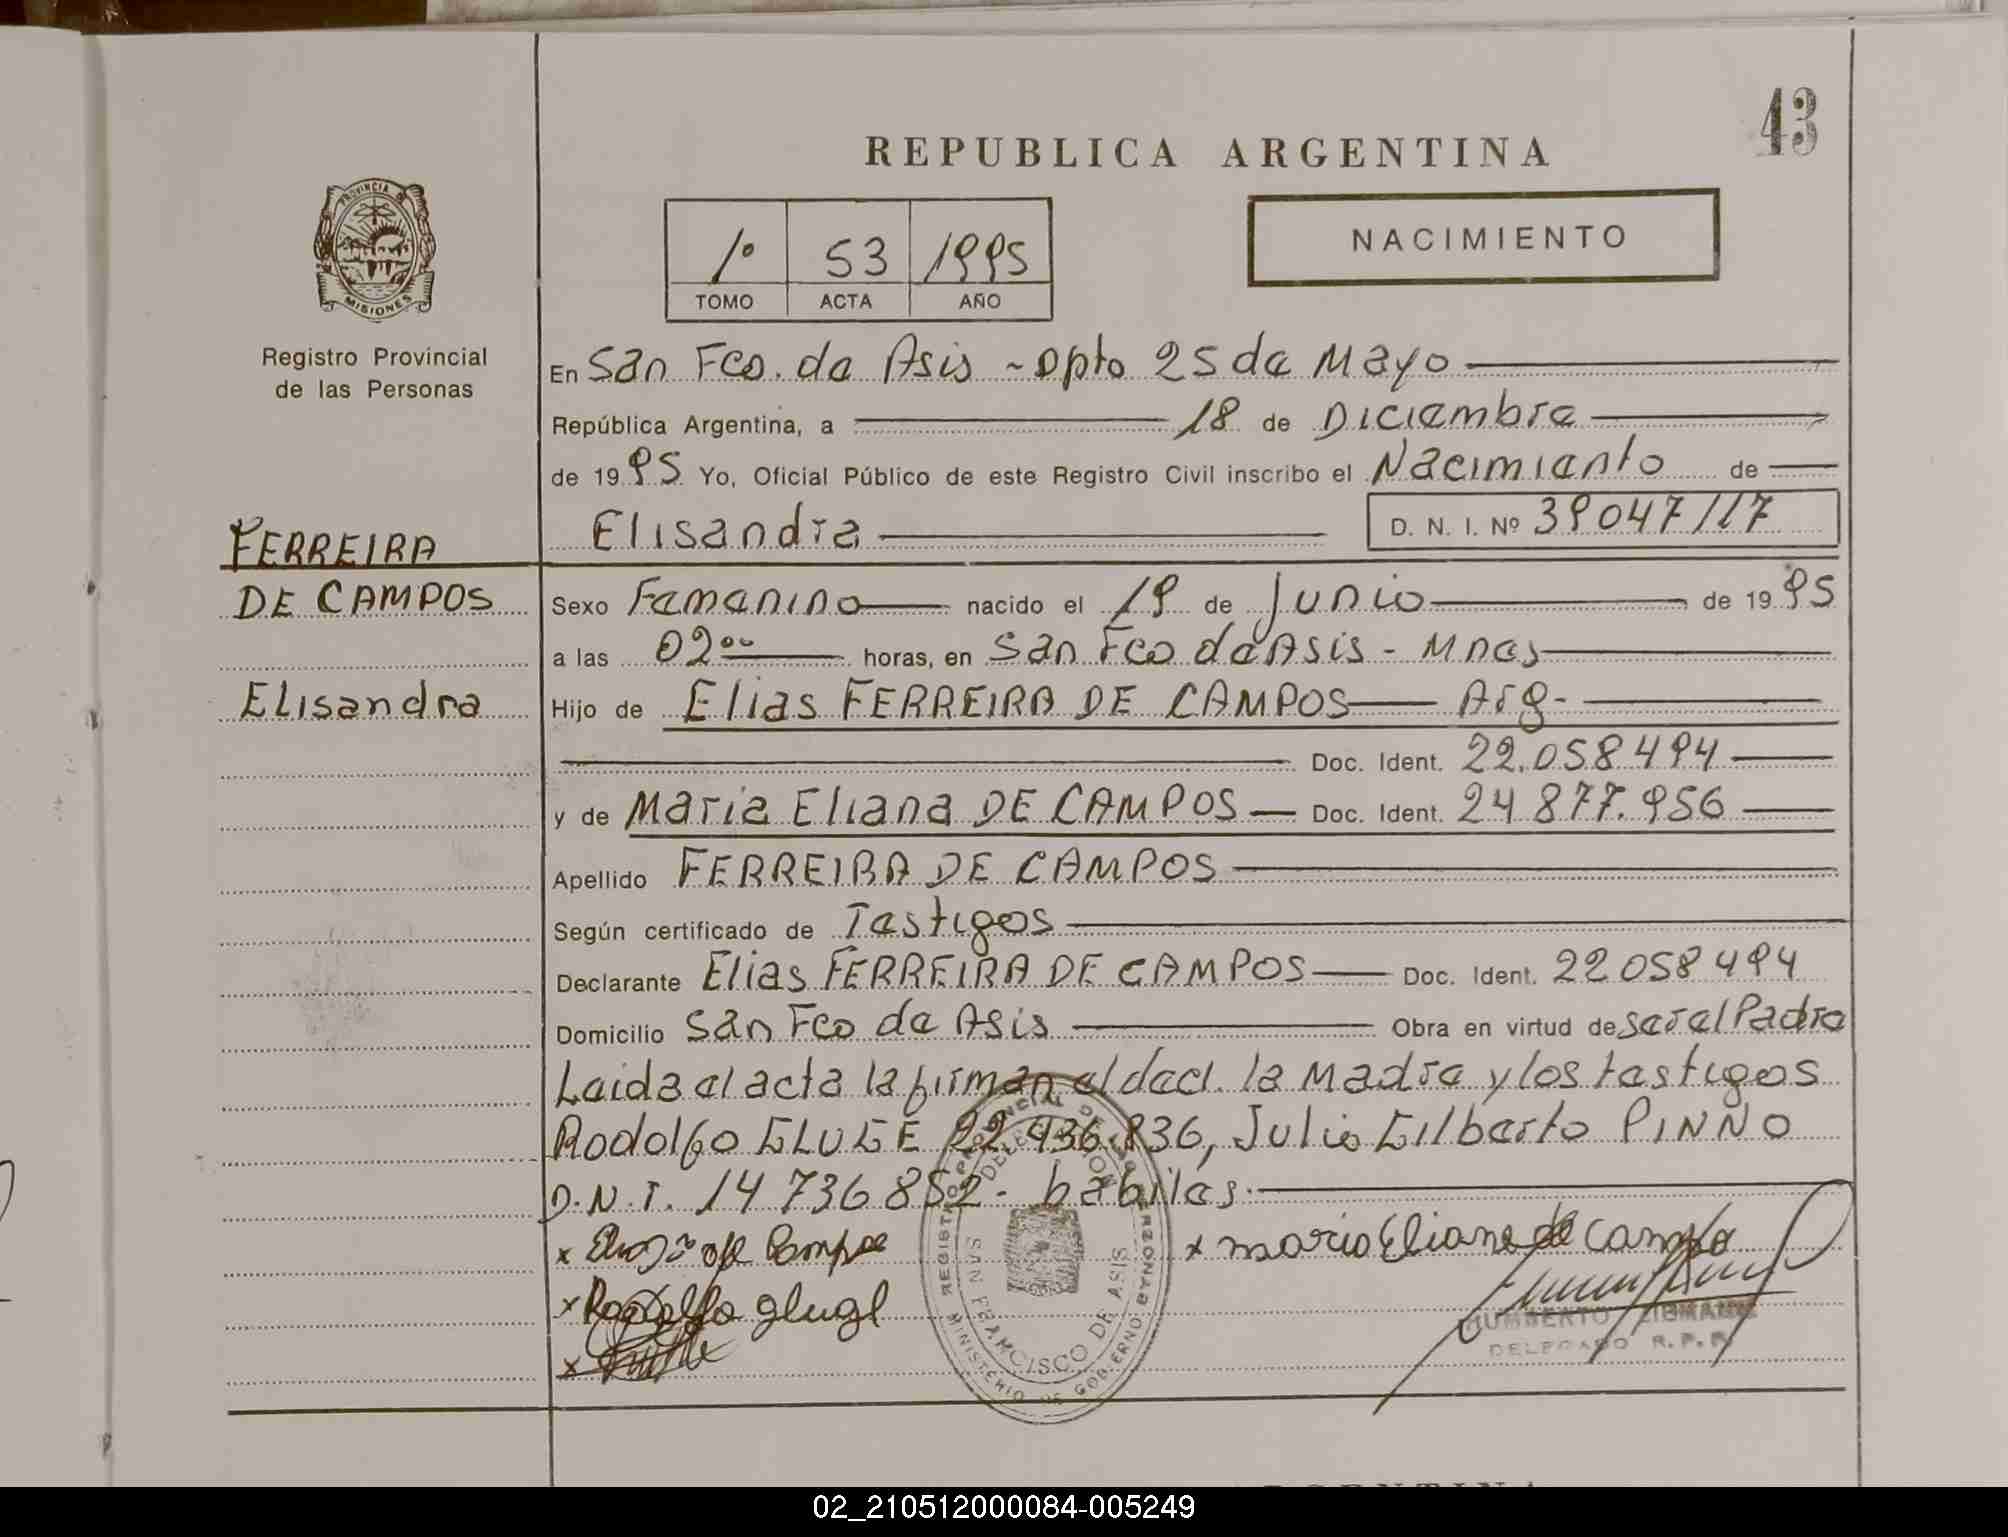 43
REPUBLICA ARGENTINA
PROVINCIA DE
MISIONES
Registro Provincial
de las Personas
1º 53 1995
TOMO ACTA AÑO
NACIMIENTO
En San Fco. de Asis - Dpto 25 de Mayo
República Argentina, a 18 de Diciembre
de 1995 Yo, Oficial Público de este Registro Civil inscribo el Nacimiento de
Elisandra D. N. I. Nº 39047117
FERREIRA
DE CAMPOS
Elisandra
Sexo Femenino nacido el 19 de Junio de 1995
a las 02ºº horas, en San Fco de Asis - Mnes
Hijo de Elias FERREIRA DE CAMPOS Arg-
Doc. Ident. 22.058494
y de Maria Eliana DE CAMPOS Doc. Ident. 24877.956
Apellido FERREIRA DE CAMPOS
Según certificado de Testigos
Declarante Elias FERREIRA DE CAMPOS Doc. Ident. 22058494
Domicilio San Fco de Asis Obra en virtud de ser el Padre
Leida el acta la firman el decl. la Madre y los testigos
Rodolfo GLUGE 22436.836, Julio Gilberto PINNO
D.N.I. 14736852- habiles.
x de Campos x Maria Eliane de Campos
x Rodolfo glugl
x
HUMBERTO
DELEGADO R.P.P.
REGISTRO PROVINCIAL DE LAS PERSONAS
DELEGACION
SAN FRANCISCO DE ASIS
MINISTERIO DE GOBIERNO
ARGENTINA
02_210512000084-005249